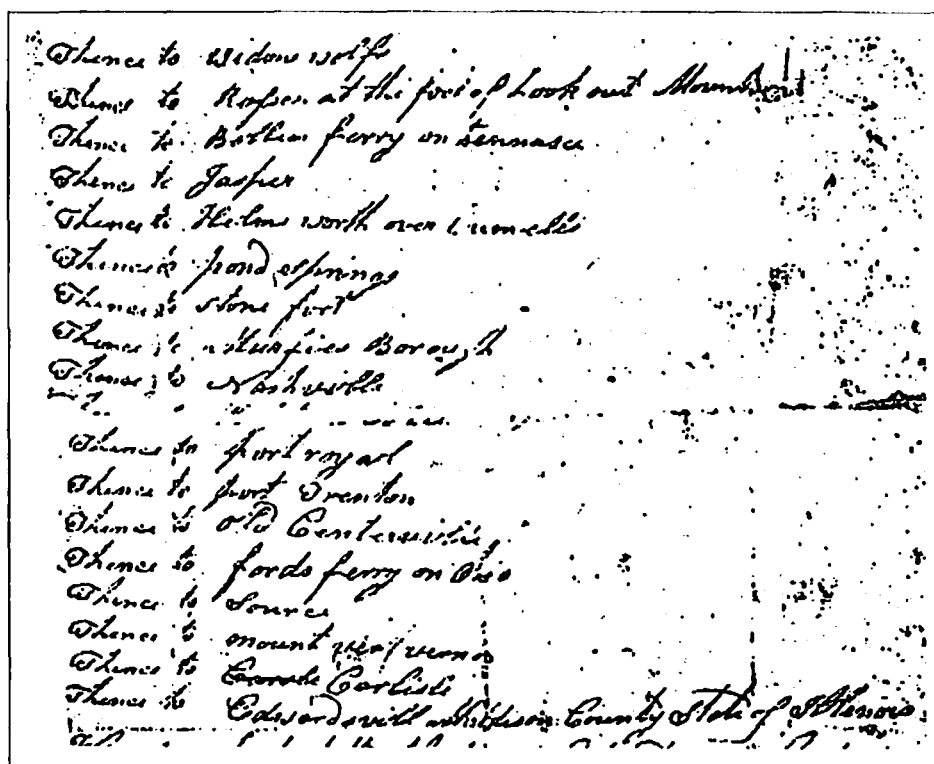 Thence to Widow wolfs
Thence to Rosses at the foot of Look out Mount
Thence to ferry on tennasee
Thence to Jasper
Thence to Helms worth over
Thence to pond springs
Thence to stone fort
Thence to Borough
Thence to Nashville
Thence to port royal
Thence to port Trenton
Thence to Old Centerville
Thence to fords ferry on Ohio
Thence to Source
Thence to mount vernon
Thence to Carlisle
Thence to Edwardsvill Madison County State of Illenois